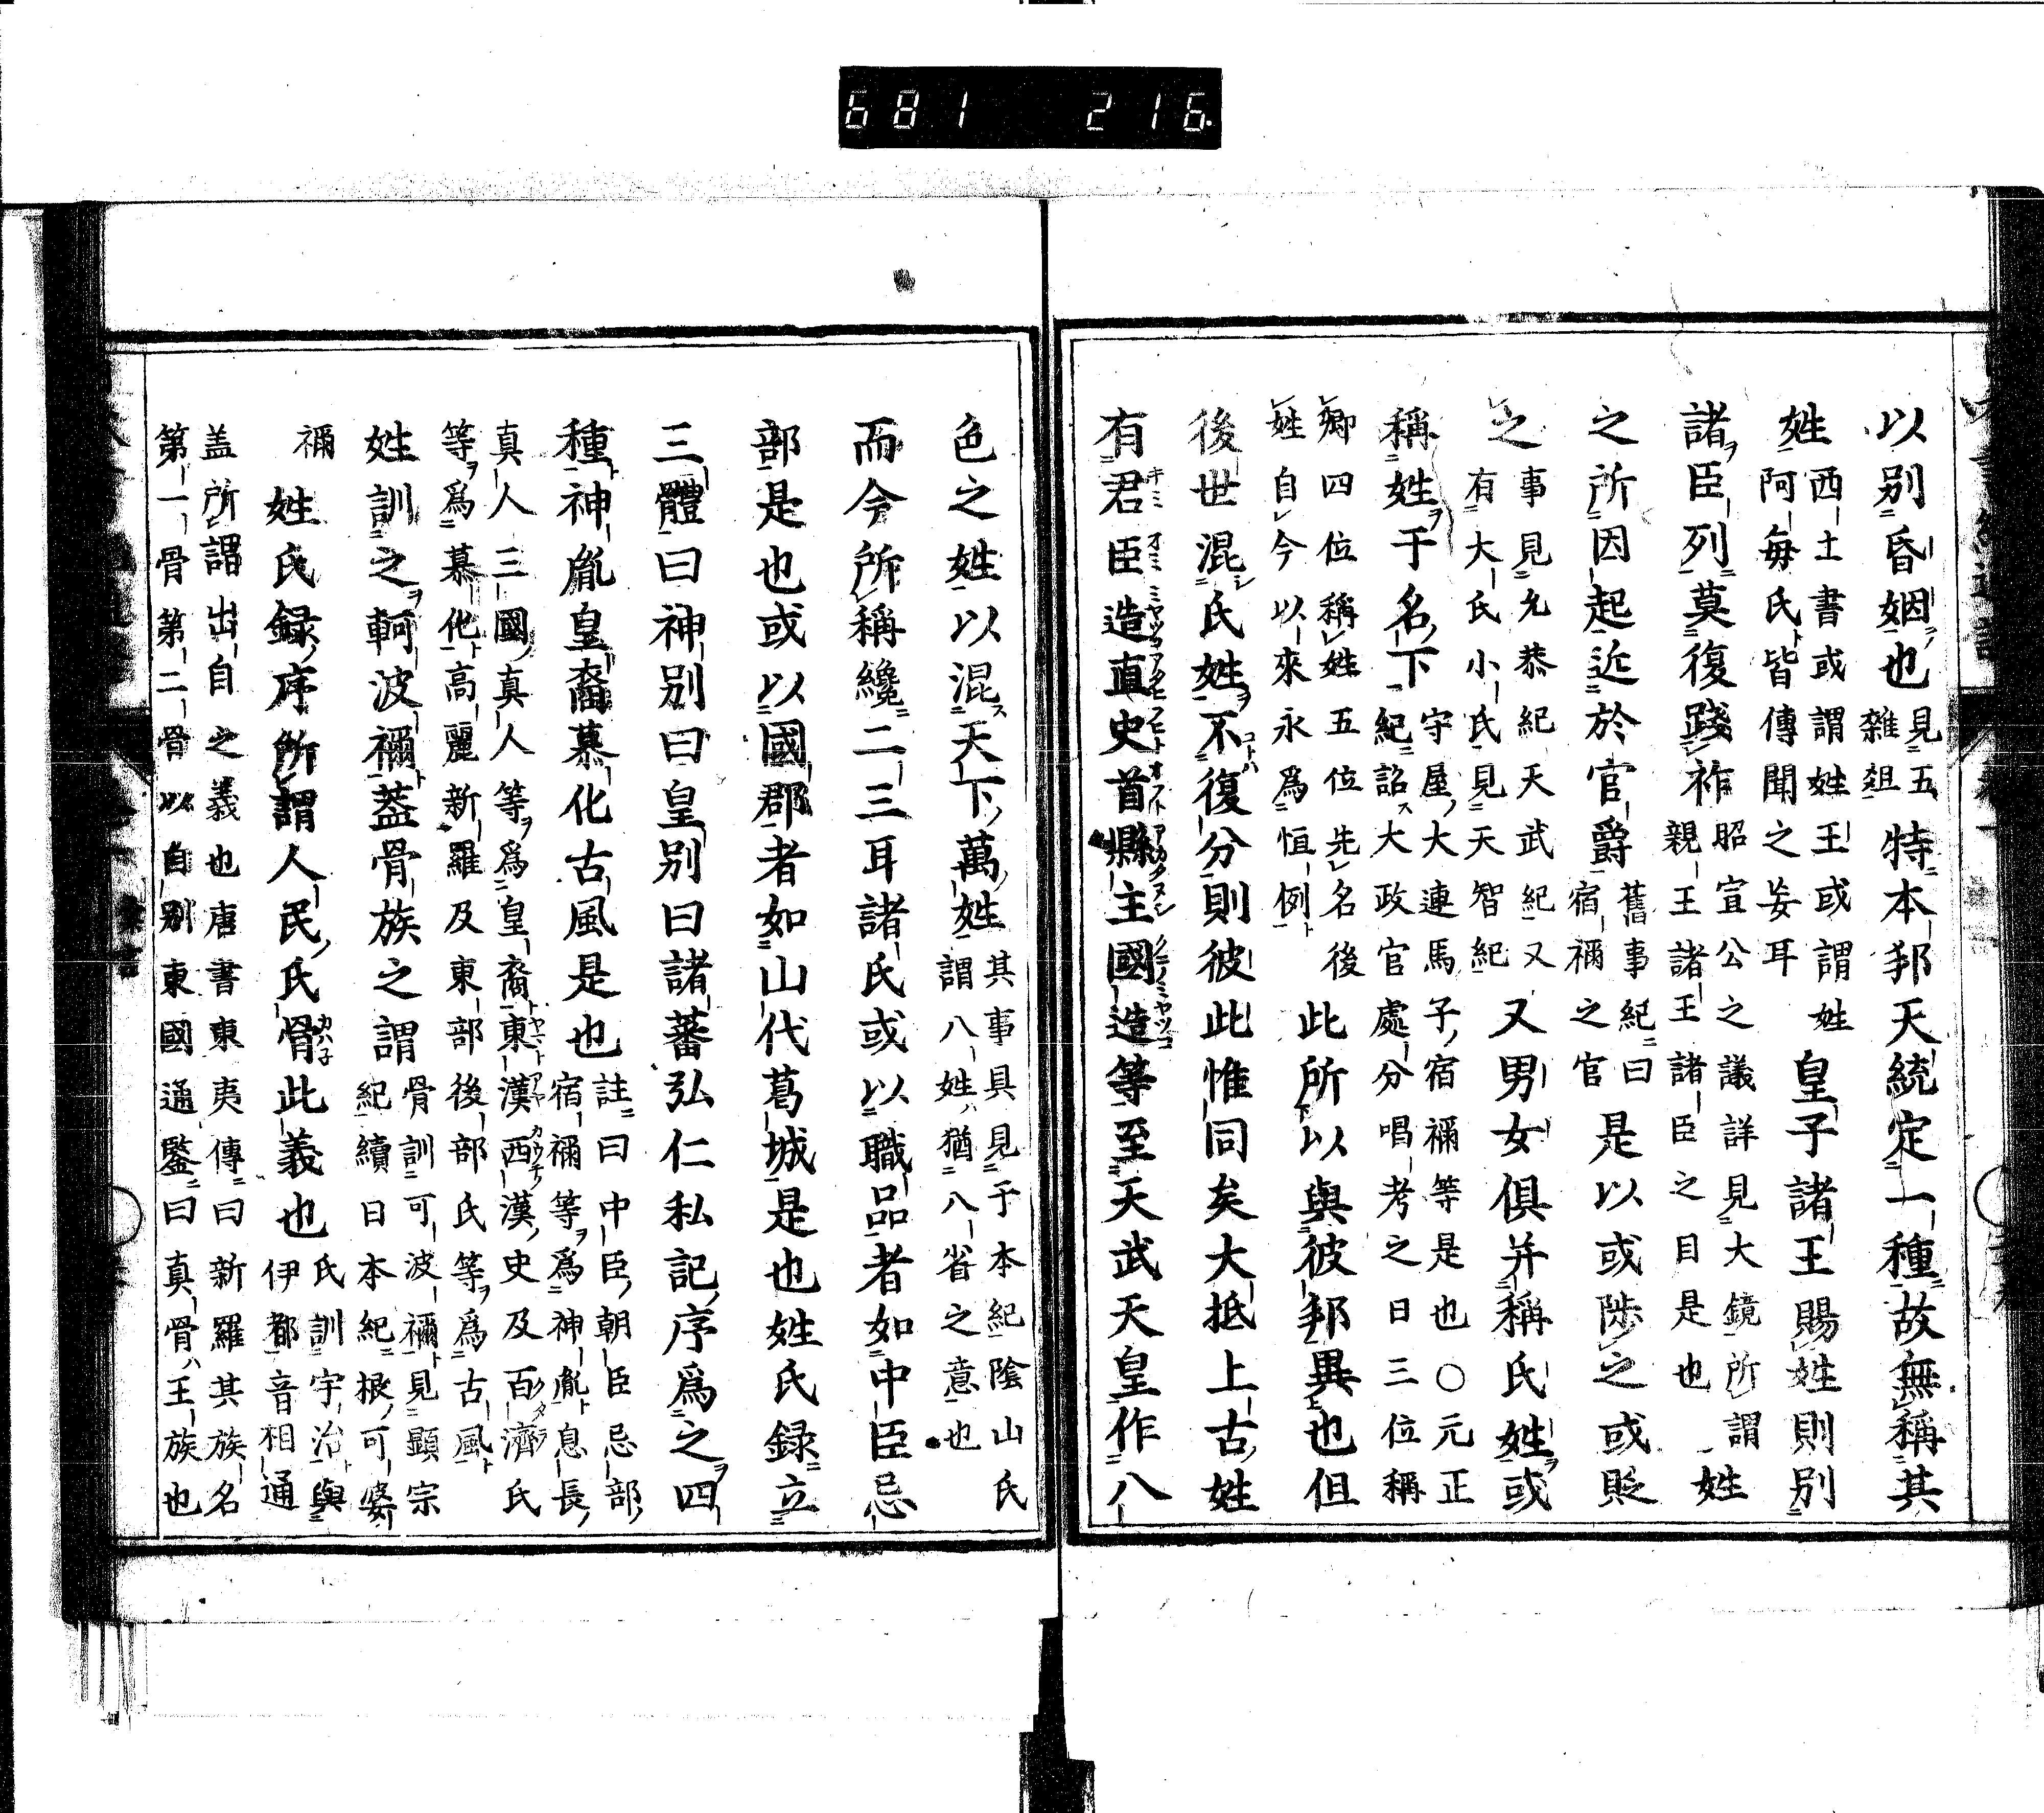 681 216
以別昏姻也見五雜俎特本邦天統定一種故無稱其
姓西土書或謂姓王或謂姓阿毎氏皆傳聞之妄耳皇子諸王賜姓則別
諸臣列莫復踐祚昭宣公之議詳見大鏡所謂親王諸王諸臣之目是也姓
之所因起近於官爵舊事紀曰宿禰之官是以或陟之或貶
之事見允恭紀天武紀又有大氏小氏見天智紀又男女俱并稱氏姓或
稱姓于名下守屋大連馬子宿禰等是也○元正紀詔大政官處分唱考之日三位稱
卿四位稱姓五位先名後姓自今以來永爲恒例此所以與彼邦異也但
後世混氏姓不復分則彼此惟同矣大抵上古姓
有君臣造直史首縣主國造等至天武天皇作八
色之姓以混天下萬姓其事具見于本紀陰山氏謂八姓猶八省之意也
而今所稱纔二三耳諸氏或以職品者如中臣忌
部是也或以國郡者如山代葛城是也姓氏録立
三體曰神別曰皇別曰諸蕃弘仁私記序爲之四
種神胤皇裔慕化古風是也註曰中臣朝臣忌部宿禰等爲神胤息長
真人三國真人等爲皇裔東漢西漢史及百濟氏
等爲慕化高麗新羅及東部後部氏等爲古風
姓訓之軻波禰蓋骨族之謂骨訓可波禰見顯宗紀續日本紀根可婆
禰姓氏録序所謂人民氏骨此義也氏訓宇治與伊都音相通
盖所謂出自之義也唐書東夷傳曰新羅其族名
第一骨第二骨以自別東國通鑒曰真骨王族也